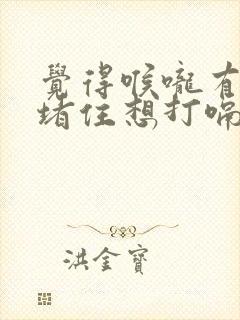 覺得喉嚨有
堵住想打嗝
洪金寶